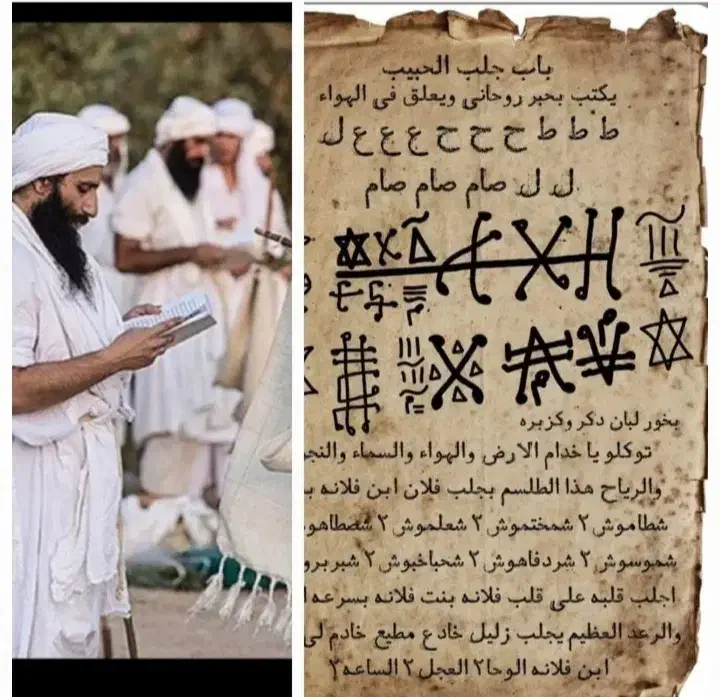 باب جلب الحبيب
يكتب بحبر روحانى ويعلق فى الهواء
ط ط ط ح ح ح ع ع ع ل
ل ل صام صام صام
بخور لبان دكر وكزبره
توكلو يا خدام الارض والهواء والسماء والنجو
والرياح هذا الطلسم بجلب فلان ابن فلانه
شطاموش ٢ شمختموش ٢ شعلموش ٢ شصطاهو
شموسوش ٢ شردفاهوش ٢ شحباخبوش ٢ شبربرو
اجلب قلبه على قلب فلانه بنت فلانه بسرعه
والرعد العظيم يجلب زليل خادع مطيع خادم لى
ابن فلانه الوحا٢ العجل ٢ الساعه٢